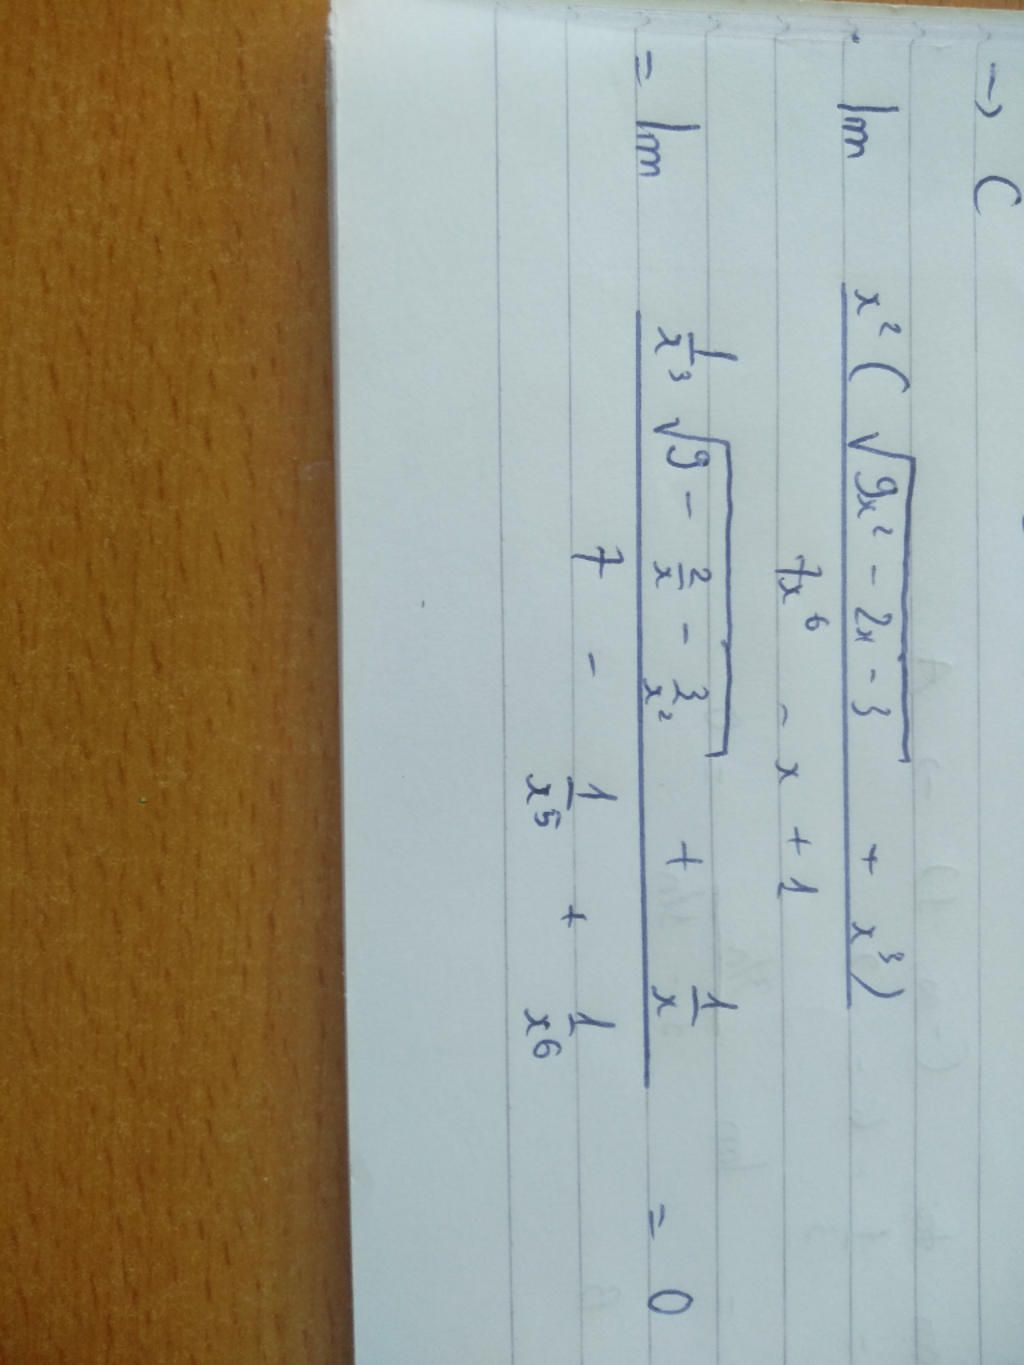 → C
lim x²(√(9x² - 2x - 3) + x³) / (7x⁶ - x + 1)
= lim (1/x³ √(9 - 2/x - 3/x²) + 1/x) / (7 - 1/x⁵ + 1/x⁶) = 0